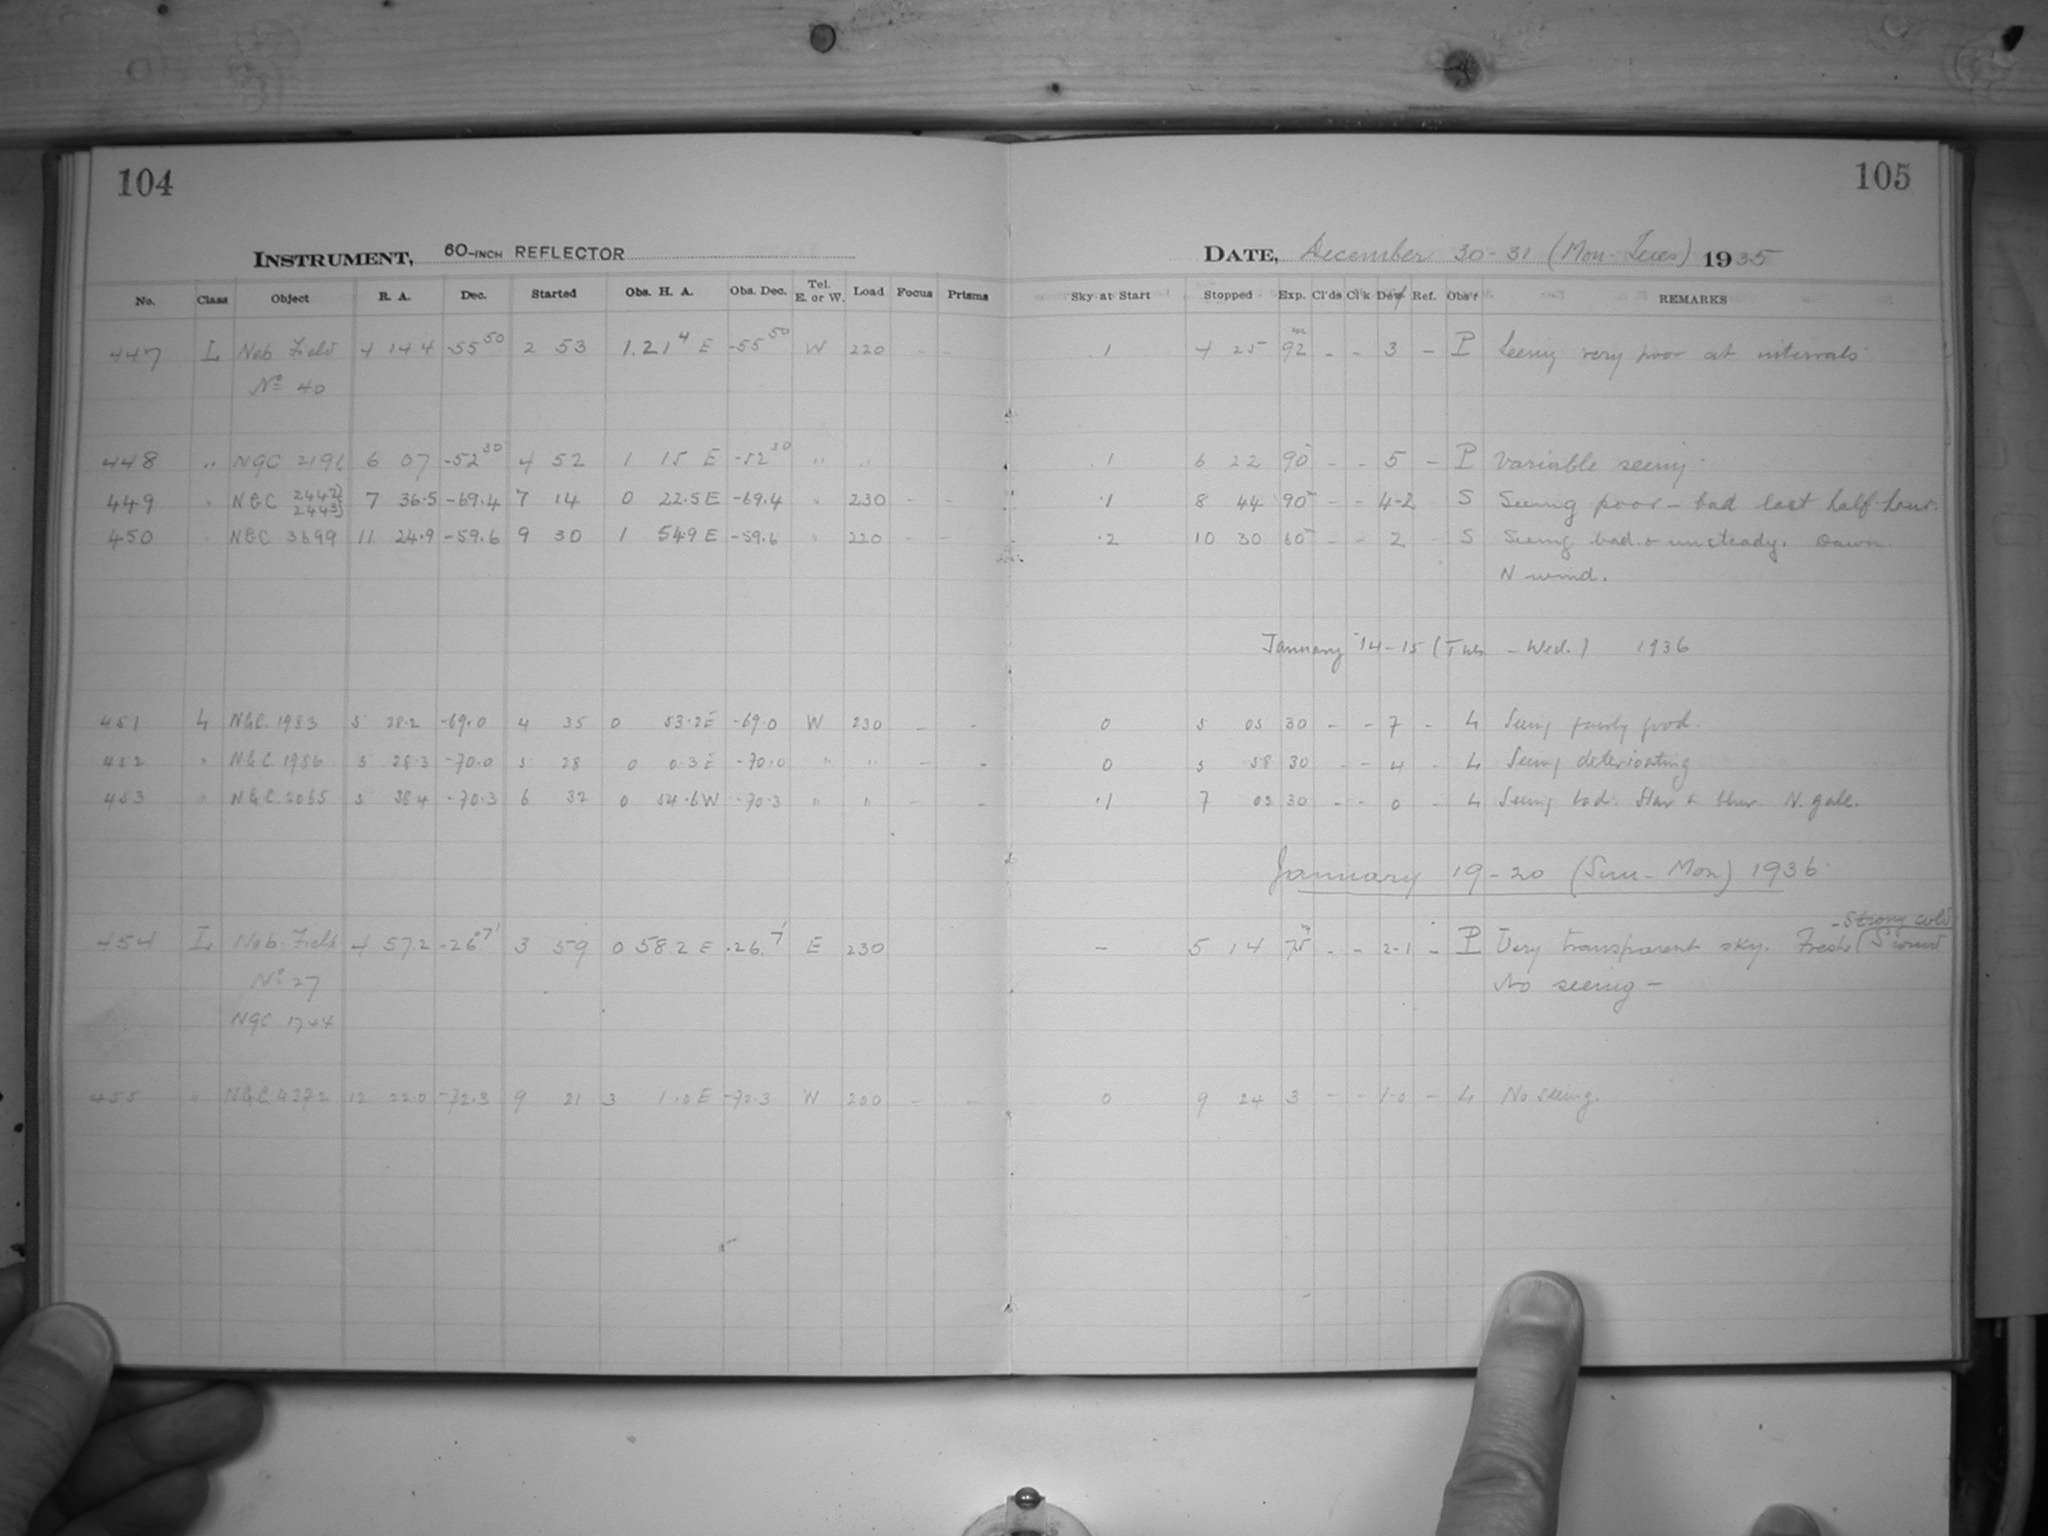 104
105
INSTRUMENT, 60-INCH REFLECTOR
DATE, December 30-31 (Mon-Tues) 1935
No. Class Object R. A. Dec. Started Obs. H. A. Obs. Dec. Tel. E. or W. Load Focus Prisms Sky at Start Stopped Exp. Cl'ds Cl'k Dew Ref. Obs'r REMARKS
447 L Neb. Field 4 14 4 -55 50 2 53 1.21 4 E -55 50 W 220 - - .1 4 25 92 m - - 3 - P Seeing very poor at intervals
No 40
448 " NGC 6 07 -52 30 4 52 1 15 E -52 30 " " .1 6 22 90 - - 5 - P Variable seeing -
449 " NGC 2442) 2443) 7 36.5 -69.4 7 14 0 22.5 E -69.4 " 230 - - .1 8 44 90 - - 4-2 S Seeing poor - bad last half-hour.
450 " NGC 3699 11 24.9 -59.6 9 30 1 54.9 E -59.6 " 220 - - .2 10 30 60 - - 2 - S Seeing bad & unsteady. Dawn.
N wind.
January 14-15 (Tues - Wed.) 1936
451 L NGC. 1983 5 28.2 -69.0 4 35 0 53.2 E -69.0 W 230 - - 0 5 05 30 - - 7 - L Seeing fairly good.
452 " NGC. 1986 5 28.3 -70.0 5 28 0 0.3 E -70.0 " " - - 0 5 58 30 - - 4 - L Seeing deteriorating
453 " NGC. 2065 5 38.4 -70.3 6 32 0 54.6 W -70.3 " " - - .1 7 02 30 - - 0 - L Seeing bad. Star a blur. N. gale.
January 19-20 (Sun-Mon) 1936
- Strong cold
454 L Neb. Field 4 57.2 -26.7' 3 59 0 58.2 E -26.7' E 230 - 5 14 75 m - - 2-1 - P Very transparent sky. Fresh ( S wind
No 27 No seeing -
NGC 1744
455 " NGC. 4372 12 22.0 -72.3 9 21 3 1.0 E -72.3 W 200 - - 0 9 24 3 - - 1-0 - L No seeing.